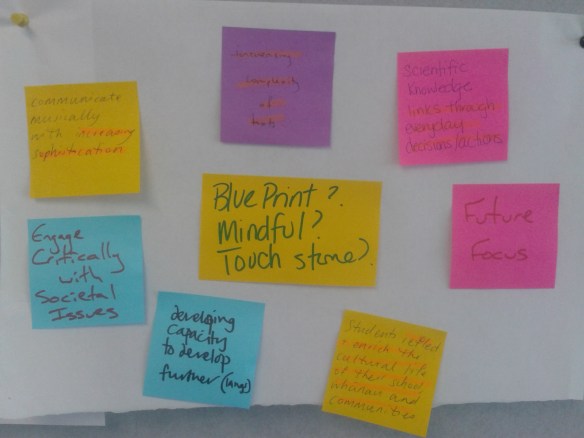 communicate
musically
with increasing
sophistication
complexity
of
texts
Scientific
knowledge
links through
everyday
decisions/actions
BluePrint?
Mindful?
Touch stone?
Future
Focus
Engage
Critically
with
Societal
Issues
developing
capacity
to develop
further
Students reflect
+ enrich the
cultural life
of their school
whanau and
communities